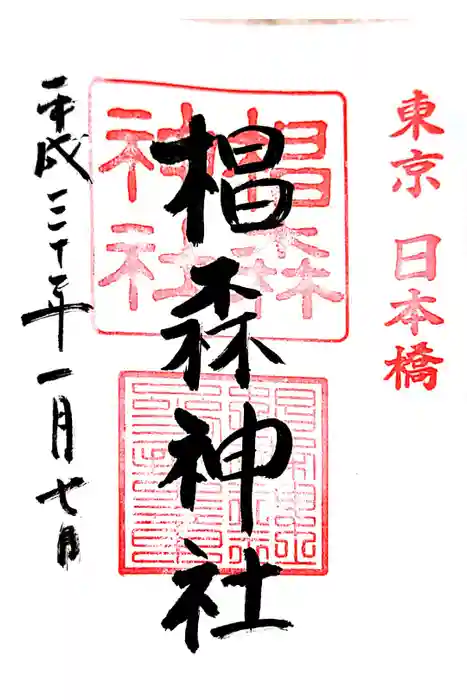 東京 日本橋
椙森神社
椙森
神社
平成三十年一月七日